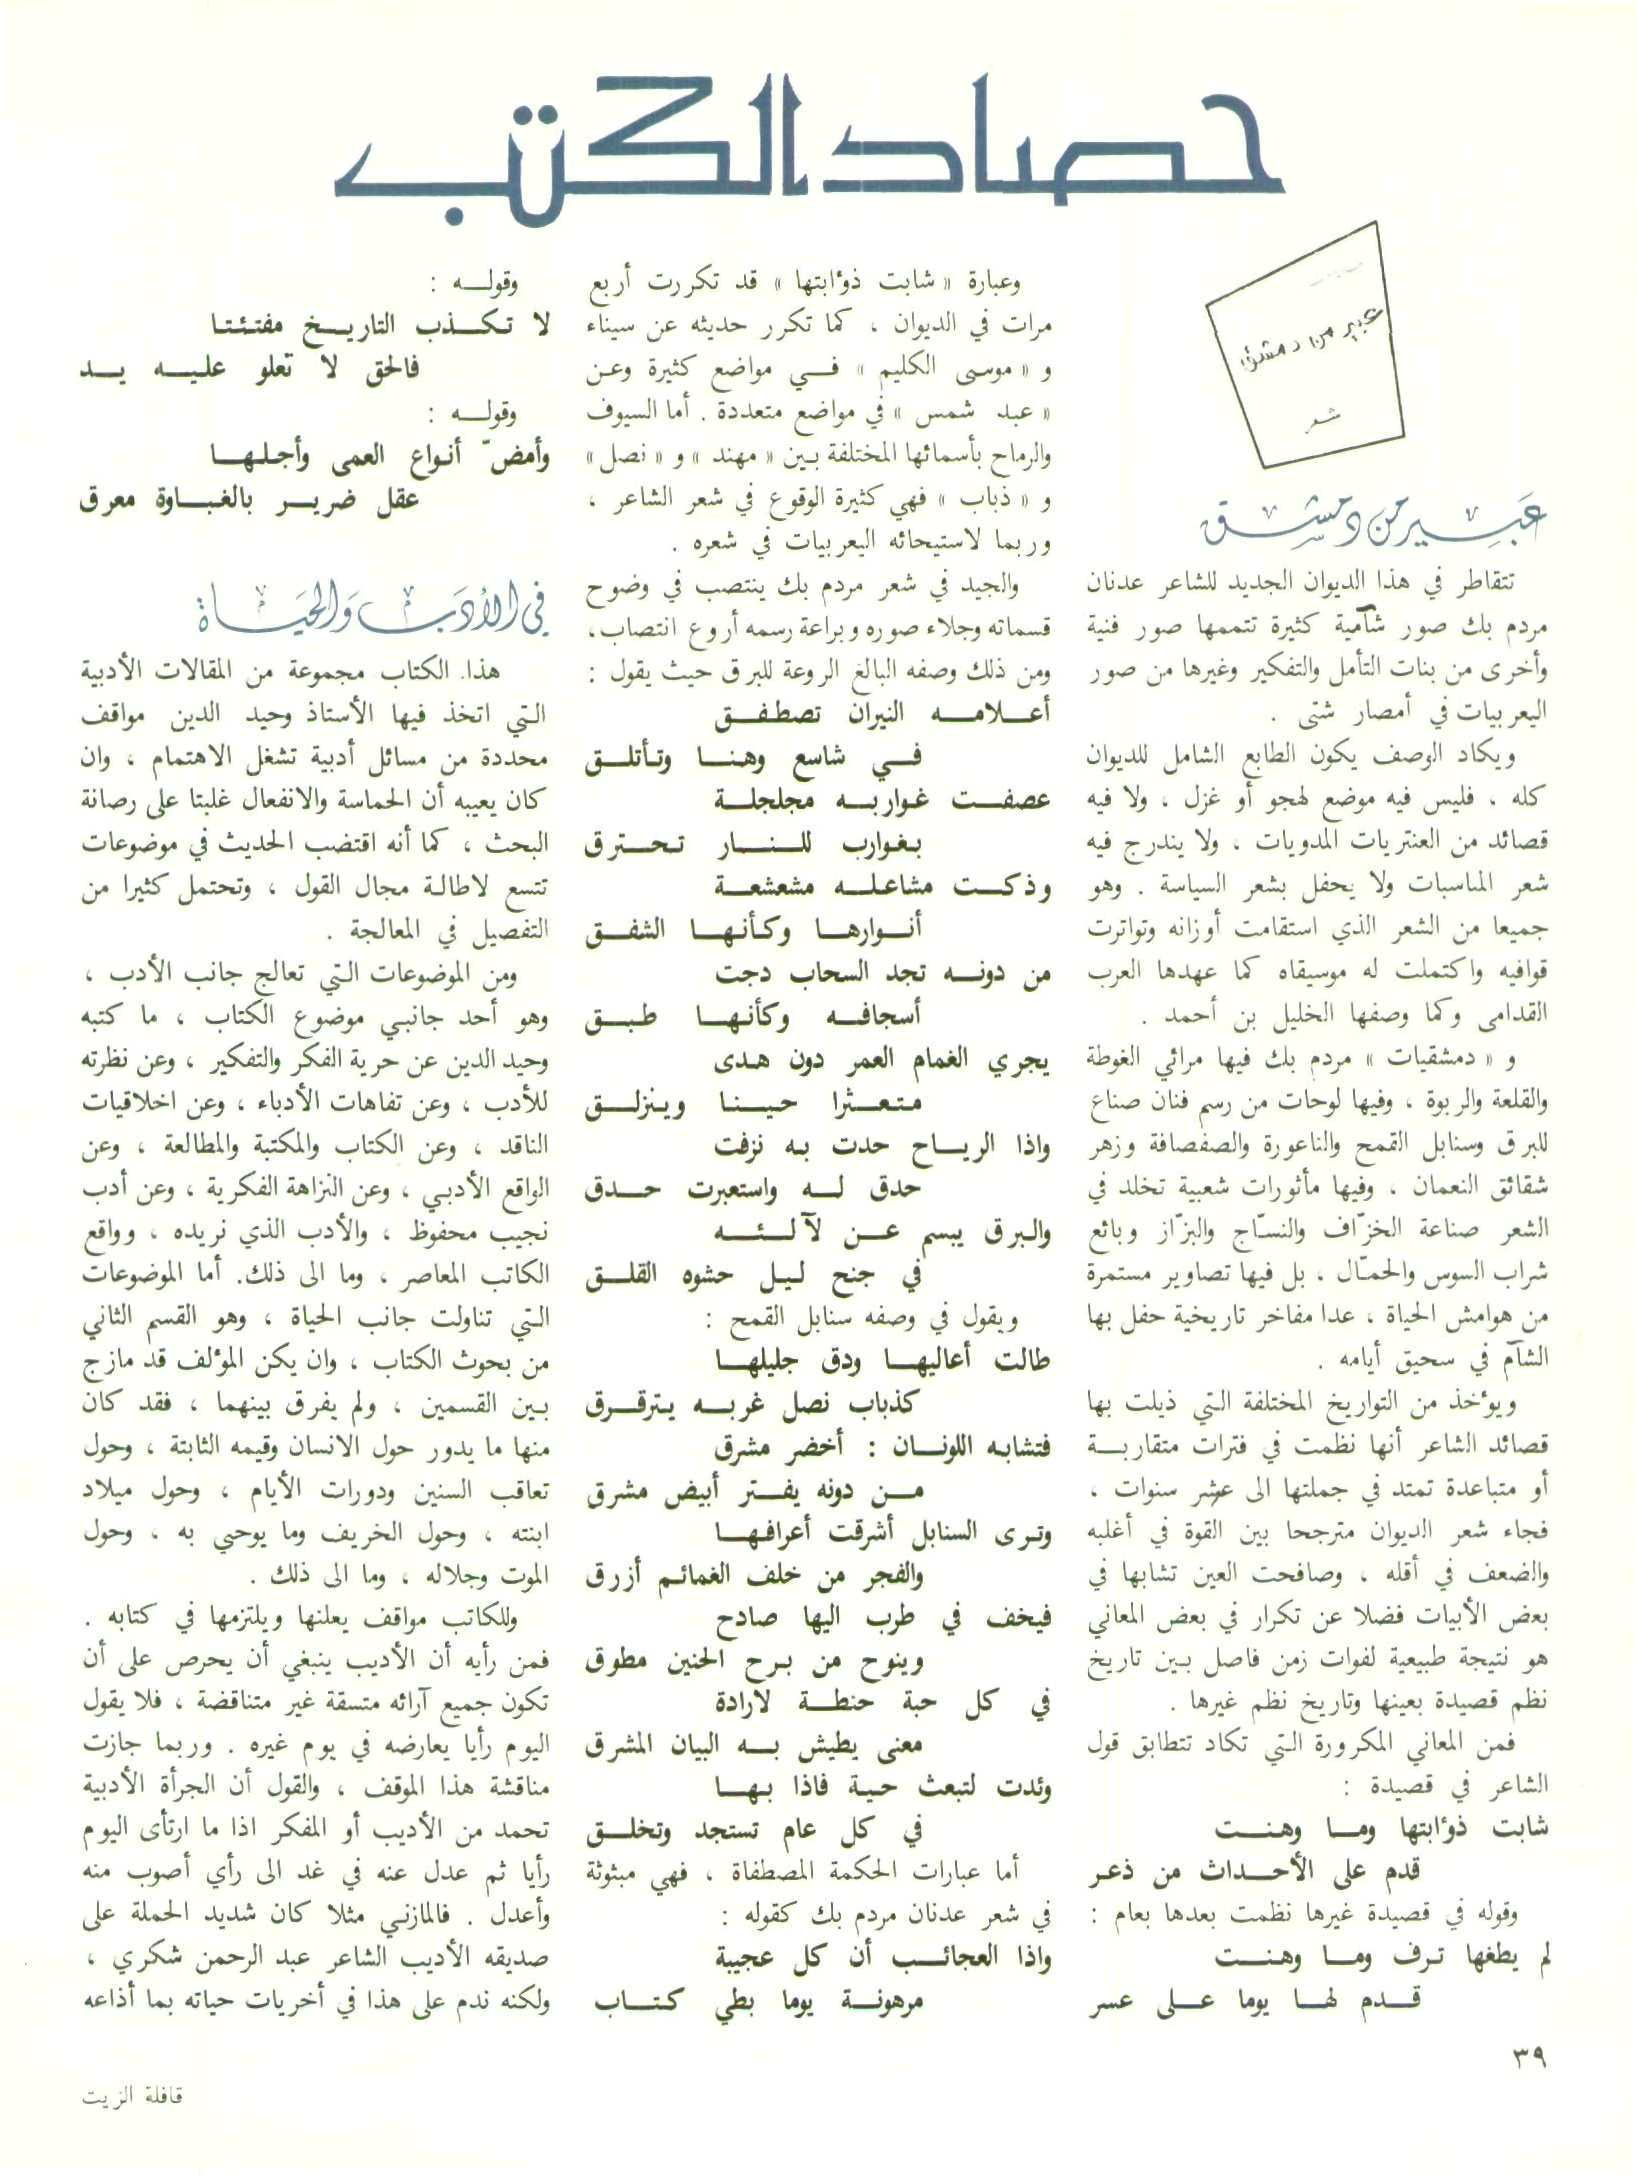 حصاد الكتب
عبير من دمشق
شعر
عبير من دمشق
تتقاطر في هذا الديوان الجديد للشاعر عدنان
مردم بك صور شآمية كثيرة تتممها صور فنية
وأخرى من بنات التأمل والتفكير وغيرها من صور
اليعربيات في أمصار شتى .
ويكاد الوصف يكون الطابع الشامل للديوان
كله ، فليس فيه موضع لهجو أو غزل ، ولا فيه
قصائد من العنتريات المدويات ، ولا يندرج فيه
شعر المناسبات ولا يحفل بشعر السياسة . وهو
جميعا من الشعر الذي استقامت أوزانه وتواترت
قوافيه واكتملت له موسيقاه كما عهدها العرب
القدامى وكما وصفها الخليل بن أحمد .
و « دمشقيات » مردم بك فيها مرائي الغوطة
والقلعة والربوة ، وفيها لوحات من رسم فنان صناع
للبرق وسنابل القمح والناعورة والصفصافة وزهر
شقائق النعمان ، وفيها مأثورات شعبية تخلد في
الشعر صناعة الخزّاف والنسّاج والبزّاز وبائع
شراب السوس والحمّال ، بل فيها تصاوير مستمرة
من هوامش الحياة ، عدا مفاخر تاريخية حفل بها
الشآم في سحيق أيامه .
ويؤخذ من التواريخ المختلفة التي ذيلت بها
قصائد الشاعر أنها نظمت في فترات متقاربة
أو متباعدة تمتد في جملتها الى عشر سنوات ،
فجاء شعر الديوان مترجحا بين القوة في أغلبه
والضعف في أقله ، وصافحت العين تشابها في
بعض الأبيات فضلا عن تكرار في بعض المعاني
هو نتيجة طبيعية لفوات زمن فاصل بين تاريخ
نظم قصيدة بعينها وتاريخ نظم غيرها .
فمن المعاني المكرورة التي تكاد تتطابق قول
الشاعر في قصيدة :
شابت ذؤابتها وما وهنت
قدم على الأحداث من ذعر
وقوله في قصيدة غيرها نظمت بعدها بعام :
لم يطغها ترف وما وهنت
قدم لها يوما على عسر
وعبارة « شابت ذؤابتها » قد تكررت أربع
مرات في الديوان ، كما تكرر حديثه عن سيناء
و « موسى الكليم » في مواضع كثيرة وعن
« عبد شمس » في مواضع متعددة . أما السيوف
والرماح بأسمائها المختلفة بين « مهند » و « نصل »
و « ذباب » فهي كثيرة الوقوع في شعر الشاعر ،
وربما لاستيحائه اليعربيات في شعره .
والجيد في شعر مردم بك ينتصب في وضوح
قسماته وجلاء صوره وبراعة رسمه أروع انتصاب،
ومن ذلك وصفه البالغ الروعة للبرق حيث يقول :
أعلامه النيران تصطفق
في شاسع وهنا وتأتلق
عصفت غواربه مجلجلة
بغوارب للنار تحترق
وذكت مشاعله مشعشعة
أنوارها وكأنها الشفق
من دونه تجد السحاب دجت
أسجافه وكأنها طبق
يجري الغمام العمر دون هدى
متعثرا حينا وينزلق
واذا الرياح حدت به نزفت
حدق له واستعبرت حدق
والبرق يبسم عن لآلئه
في جنح ليل حشوه القلق
ويقول في وصفه سنابل القمح :
طالت أعاليها ودق جليلها
كذباب نصل غربه يترقرق
فتشابه اللونان : أخضر مشرق
من دونه يفتر أبيض مشرق
وترى السنابل أشرقت أعرافها
والفجر من خلف الغمائم أزرق
فيخف في طرب اليها صادح
وينوح من برح الحنين مطوق
في كل حبة حنطة لارادة
معنى يطيش به البيان المشرق
وئدت لتبعث حية فاذا بها
في كل عام تستجد وتخلق
أما عبارات الحكمة المصطفاة ، فهي مبثوثة
في شعر عدنان مردم بك كقوله :
واذا العجائب أن كل عجيبة
مرهونة يوما بطي كتاب
وقوله :
لا تكذب التاريخ مفتئتا
فالحق لا تعلو عليه يد
وقوله :
وأمضّ أنواع العمى وأجلها
عقل ضرير بالغباوة معرق
في الأدب والحياة
هذا الكتاب مجموعة من المقالات الأدبية
التي اتخذ فيها الأستاذ وحيد الدين مواقف
محددة من مسائل أدبية تشغل الاهتمام ، وان
كان يعيبه أن الحماسة والانفعال غلبتا على رصانة
البحث ، كما أنه اقتضب الحديث في موضوعات
تتسع لاطالة مجال القول ، وتحتمل كثيرا من
التفصيل في المعالجة .
ومن الموضوعات التي تعالج جانب الأدب ،
وهو أحد جانبي موضوع الكتاب ، ما كتبه
وحيد الدين عن حرية الفكر والتفكير ، وعن نظرته
للأدب ، وعن تفاهات الأدباء ، وعن اخلاقيات
الناقد ، وعن الكتاب والمكتبة والمطالعة ، وعن
الواقع الأدبي ، وعن النزاهة الفكرية ، وعن أدب
نجيب محفوظ ، والأدب الذي نريده ، وواقع
الكاتب المعاصر ، وما الى ذلك. أما الموضوعات
التي تناولت جانب الحياة ، وهو القسم الثاني
من بحوث الكتاب ، وان يكن المؤلف قد مازج
بين القسمين ، ولم يفرق بينهما ، فقد كان
منها ما يدور حول الانسان وقيمه الثابتة ، وحول
تعاقب السنين ودورات الأيام ، وحول ميلاد
ابنته ، وحول الخريف وما يوحي به ، وحول
الموت وجلاله ، وما الى ذلك .
وللكاتب مواقف يعلنها ويلتزمها في كتابه .
فمن رأيه أن الأديب ينبغي أن يحرص على أن
تكون جميع آرائه متسقة غير متناقضة ، فلا يقول
اليوم رأيا يعارضه في يوم غيره . وربما جازت
مناقشة هذا الموقف ، والقول أن الجرأة الأدبية
تحمد من الأديب أو المفكر اذا ما ارتأى اليوم
رأيا ثم عدل عنه في غد الى رأي أصوب منه
وأعدل . فالمازني مثلا كان شديد الحملة على
صديقه الأديب الشاعر عبد الرحمن شكري ،
ولكنه ندم على هذا في أخريات حياته بما أذاعه
٣٩
قافلة الزيت